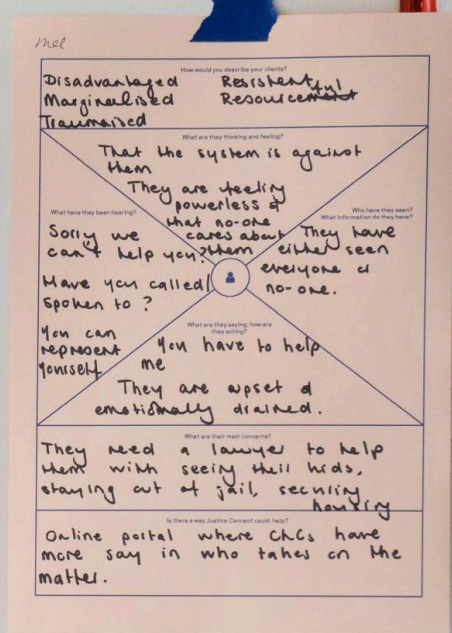 mel
How would you describe your clients?
Disadvantaged Resistent
Marginalised Resourceful
Traumaised
What are they thinking and feeling?
That the system is against
them
They are feeling
powerless &
that no-one
cares about
them
What have they been hearing?
Sorry we
can't help you?
Have you called/
spoken to?
You can
represent
yourself
Who have they seen?
What information do they have?
They have
either seen
everyone or
no-one.
What are they saying, how are
they acting?
You have to help
me
They are upset &
emotionally drained.
What are their main concerns?
They need a lawyer to help
them with seeing their kids,
staying out of jail, securing
housing
Is there a way Justice Connect could help?
Online portal where CLCs have
more say in who takes on the
matter.